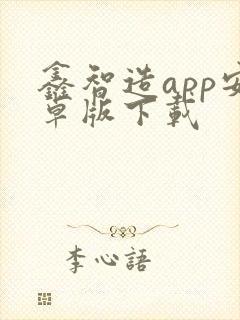 鑫智造app安
卓版下载
李心語